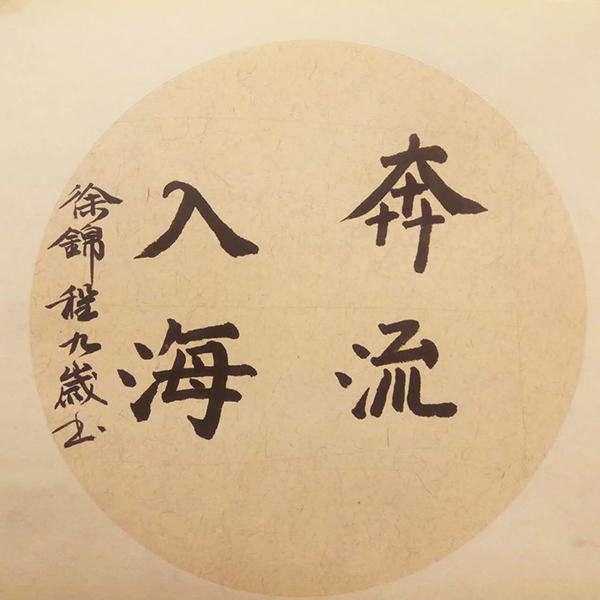 奔流
入海
徐錦程九歲书